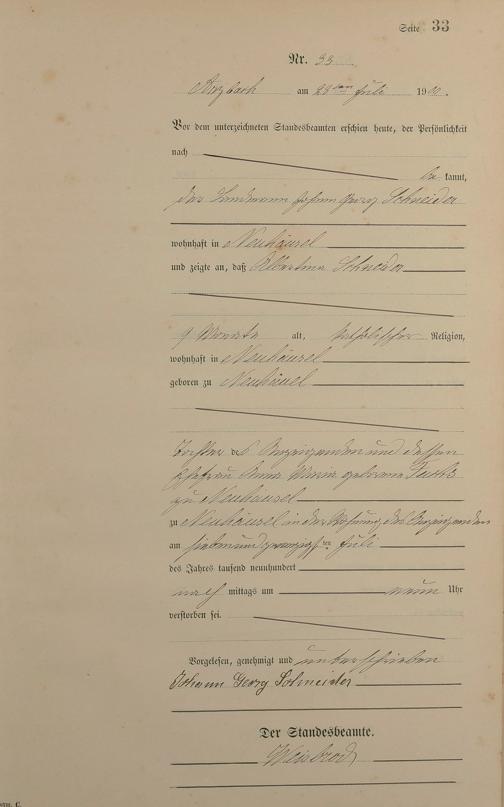 Seite 33
Nr. 33
Arzbach am 28ten Juli 1900.
Vor dem unterzeichneten Standesbeamten erschien heute, der Persönlichkeit
nach
be kannt,
der Landmann Johann Georg Schneider
wohnhaft in Neuhäusel
und zeigte an, daß Albertina Schneider
9 Monate alt, katholischer Religion,
wohnhaft in Neuhäusel
geboren zu Neuhäusel
Tochter des Anzeigenden und dessen
Ehefrau Anna Maria geborene Fuchs
zu Neuhäusel
zu Neuhäusel in der Wohnung des Anzeigenden
am siebenundzwanzigsten Juli
des Jahres tausend neunhundert
nach mittags um neun Uhr
verstorben sei.
Vorgelesen, genehmigt und unterschrieben
Johann Georg Schneider
Der Standesbeamte.
Weisbrod